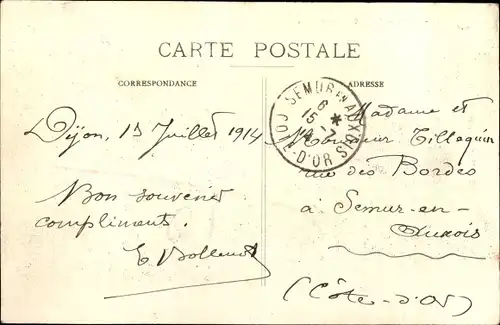 CARTE POSTALE
CORRESPONDANCE
ADRESSE
SEMUR EN AUXOIS
6
15 - 7
14
CÔTE-D'OR
Dijon, 15 Juillet 1914
Bon souvenir
compliments.
Madame et
Monsieur Tillequin
rue des Bordes
à Semur-en-
Auxois
(Côte-d'Or)